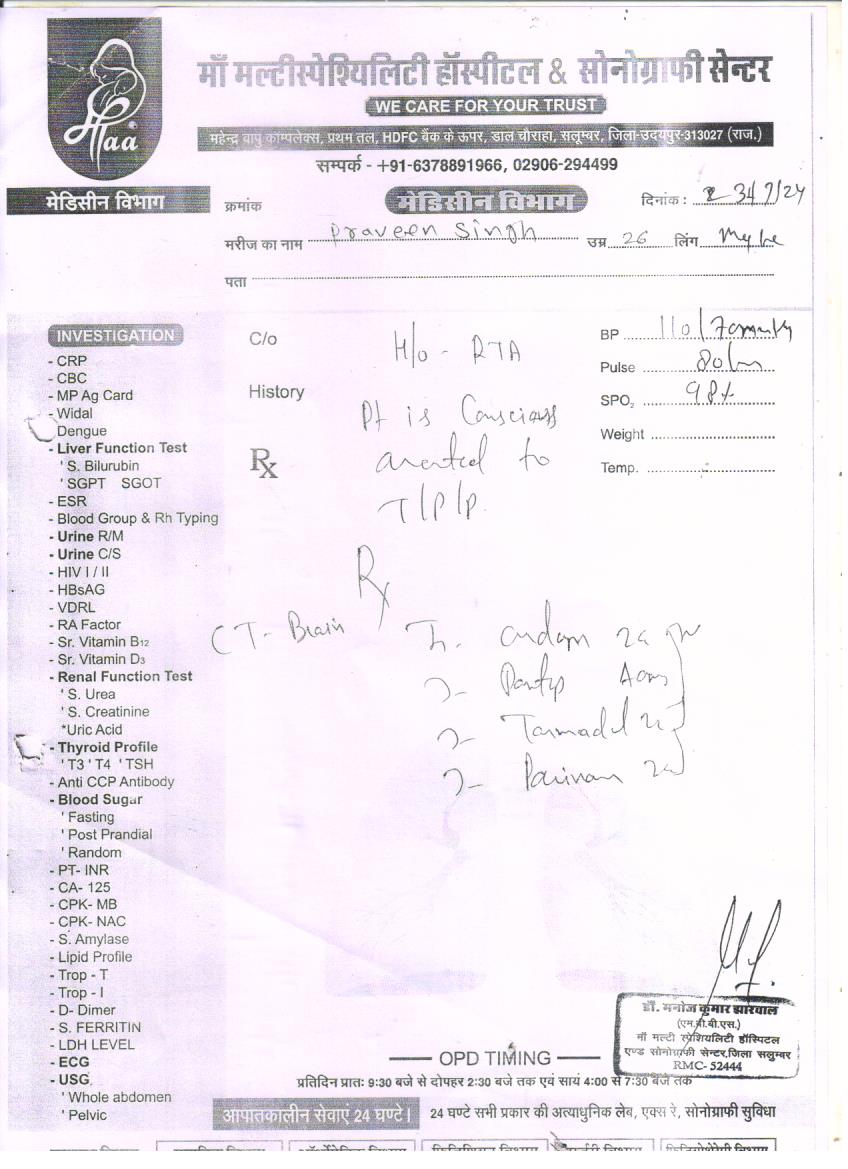 माँ मल्टीस्पेश्यिलिटी हॉस्पीटल & सोनोग्राफी सेन्टर
Maa
WE CARE FOR YOUR TRUST
महेन्द्र वापु कॉम्पलेक्स, प्रथम तल, HDFC बैंक के ऊपर, डाल चौराहा, सलूम्बर, जिला-उदयपुर-313027 (राज.)
सम्पर्क - +91-6378891966, 02906-294499
मेडिसीन विभाग
क्रमांक
मेडिसीन विभाग
दिनांक :
मरीज का नाम Praveen Singh उम्र 26 लिंग
पता
INVESTIGATION
- CRP
- CBC
- MP Ag Card
- Widal
Dengue
- Liver Function Test
' S. Bilurubin
' SGPT SGOT
- ESR
- Blood Group & Rh Typing
- Urine R/M
- Urine C/S
- HIV I / II
- HBsAG
- VDRL
- RA Factor
- Sr. Vitamin B12
- Sr. Vitamin D3
- Renal Function Test
' S. Urea
' S. Creatinine
*Uric Acid
- Thyroid Profile
' T3 ' T4 ' TSH
- Anti CCP Antibody
- Blood Sugar
' Fasting
' Post Prandial
' Random
- PT- INR
- CA- 125
- CPK- MB
- CPK- NAC
- S. Amylase
- Lipid Profile
- Trop - T
- Trop - I
- D- Dimer
- S. FERRITIN
- LDH LEVEL
- ECG
- USG
' Whole abdomen
' Pelvic
C/o
H/o - RTA
History
Pt is Conscious
to
T/P/P.
Rx
BP 110/70
Pulse 80
SPO2 98%
Weight
Temp.
Rx
CT- Brain
डॉ. मनोज कुमार झारवाल
(एम.बी.बी.एस.)
माँ मल्टी स्पेशियलिटी हॉस्पिटल
एण्ड सोनोग्राफी सेन्टर,जिला सलुम्बर
RMC- 52444
OPD TIMING
प्रतिदिन प्रातः 9:30 बजे से दोपहर 2:30 बजे तक एवं सायं 4:00 से 7:30 बजे तक
आपातकालीन सेवाएं 24 घण्टे।
24 घण्टे सभी प्रकार की अत्याधुनिक लेब, एक्स रे, सोनोग्राफी सुविधा